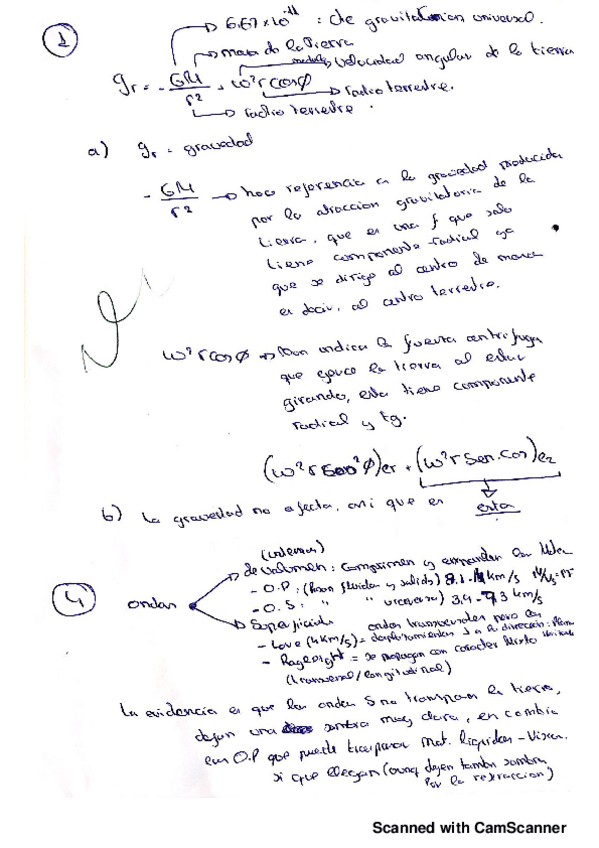 1
6.67x10^-11 : cte gravitation universal.
masa de la Tierra
velocidad angular de la tierra
gr = - GM/r² + ω²r cosφ → radio terrestre.
radio terrestre.
a) gr = gravedad
- GM/r² → hace referencia a la gravedad producida
por la atraccion gravitatoria de la
tierra, que es una f que solo
tiene componente radial ya
que se dirige al centro de masa
es decir, al centro terrestre.
ω²r cosφ → indica la fuerza centrifuga
que ejerce la tierra al estar
girando, esta tiene componente
radial y tg.
(ω²r cos²φ)er + (ω²r sen.cos)e2
b) La gravedad no afecta, asi que es esta
4
ondas
(internas)
de volumen: Comprimen y expanden la
- O.P: ( fluidos y solidos) km/s
- O.S: " " km/s
Superficiales
ondas transversales pero con
- Love (4km/s) = desplazamientos a la direccion
- Rayleight = se propagan con caracter mixto
(transversal/longitudinal)
La evidencia es que las ondas S no traspasan la tierra,
dejan una sombra muy clara, en cambio
las O.P que puede traspasar mat. liquidos
si que llegan (aunq dejen sombra
por la refraccion)
Scanned with CamScanner